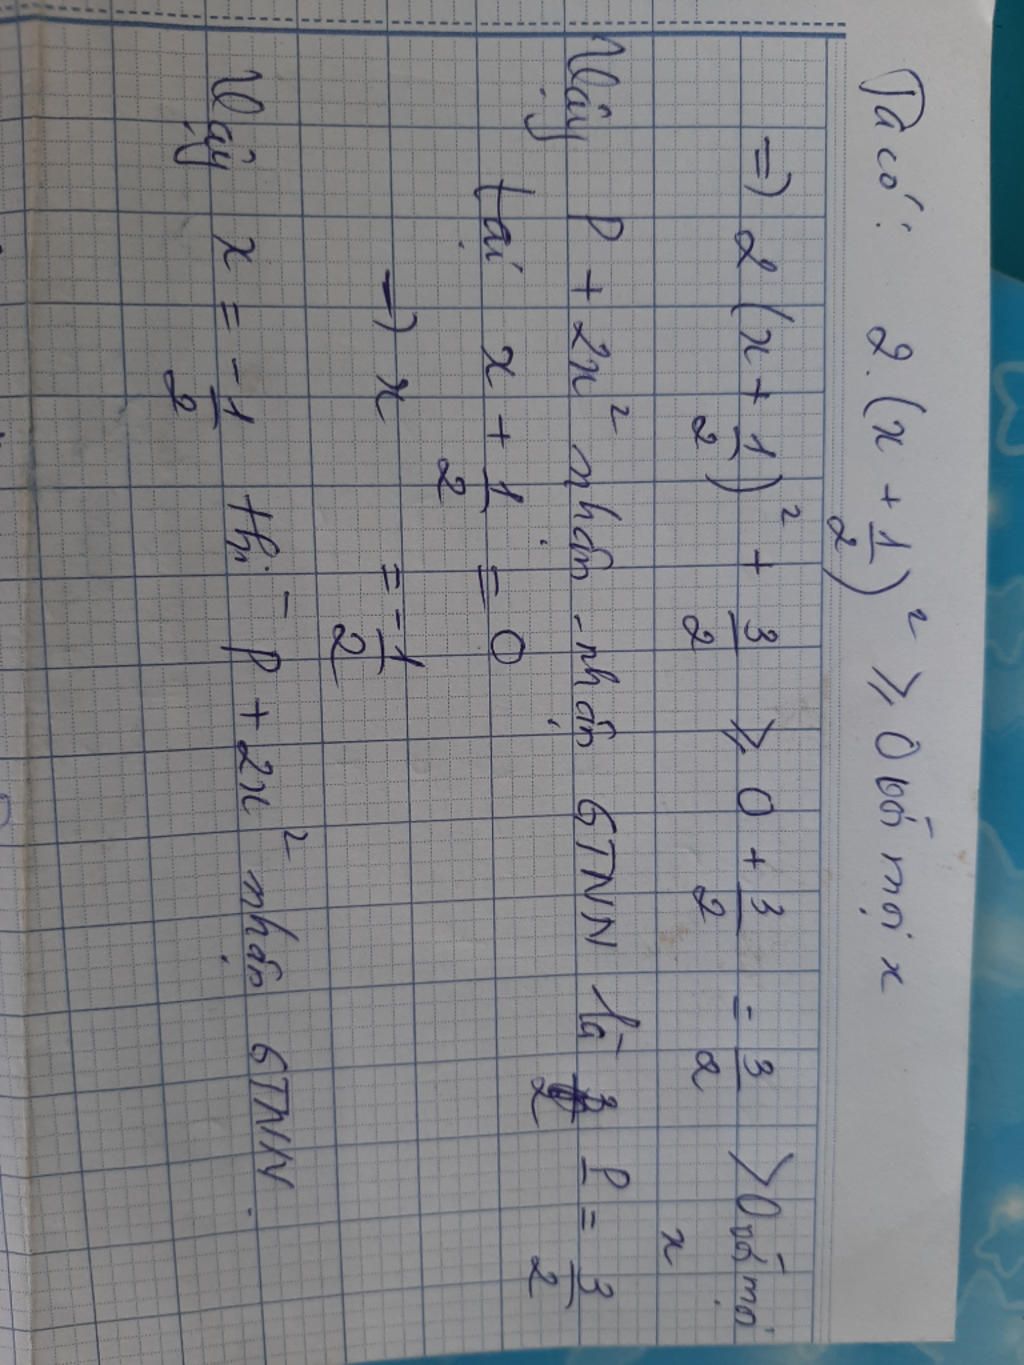 Ta có: 2.(x + 1/2)² ≥ 0 với mọi x
=> 2(x + 1/2)² + 3/2 ≥ 0 + 3/2 = 3/2 > 0 với mọi x
Vậy P + 2x² nhận nhận GTNN là 3/2 P = 3/2
tại x + 1/2 = 0
=> x = -1/2
Vậy x = -1/2 thì P + 2x² nhận GTNN.